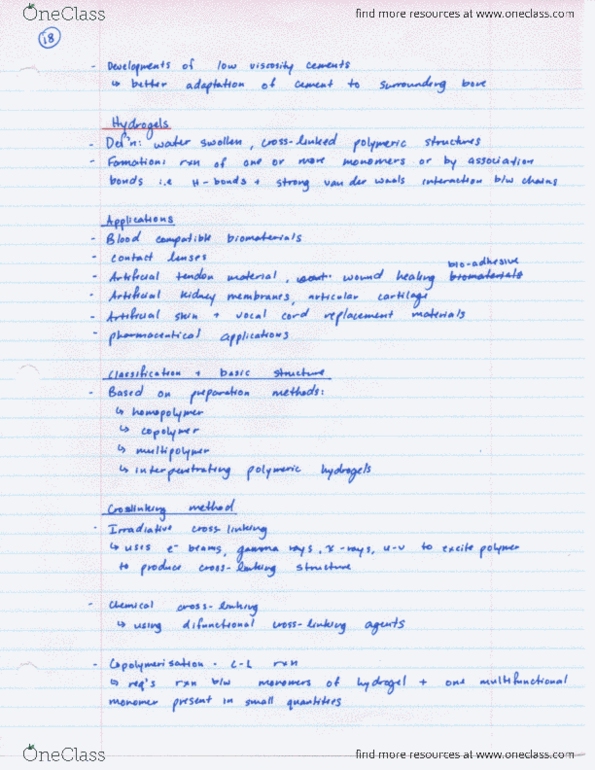 OneClass
find more resources at www.oneclass.com
18
- Developments of low viscosity cements
↳ better adaptation of cement to surrounding bone
Hydrogels
- Def'n: water swollen, cross-linked polymeric structures
- Formation: rxn of one or more monomers or by association
bonds i.e H-bonds + strong van der waals interaction b/w chains
Applications
- Blood compatible biomaterials
- contact lenses
bio-adhesive
- Artificial tendon material, wound healing biomaterials
- Artificial kidney membranes, articular cartilage
- Artificial skin + vocal cord replacement materials
- pharmaceutical applications
Classification + basic structure
- Based on preparation methods:
↳ homopolymer
↳ copolymer
↳ multipolymer
↳ interpenetrating polymeric hydrogels
Crosslinking method
- Irradiative cross-linking
↳ uses e⁻ beams, gamma rays, x-rays, u-v to excite polymer
to produce cross-linking structure
- Chemical cross-linking
↳ using difunctional cross-linking agents
- Copolymerisation - C-L rxn
↳ req's rxn b/w monomers of hydrogel + one multifunctional
monomer present in small quantities
OneClass
find more resources at www.oneclass.com